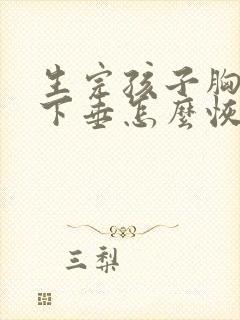 生完孩子胸
下垂怎麼恢
三梨